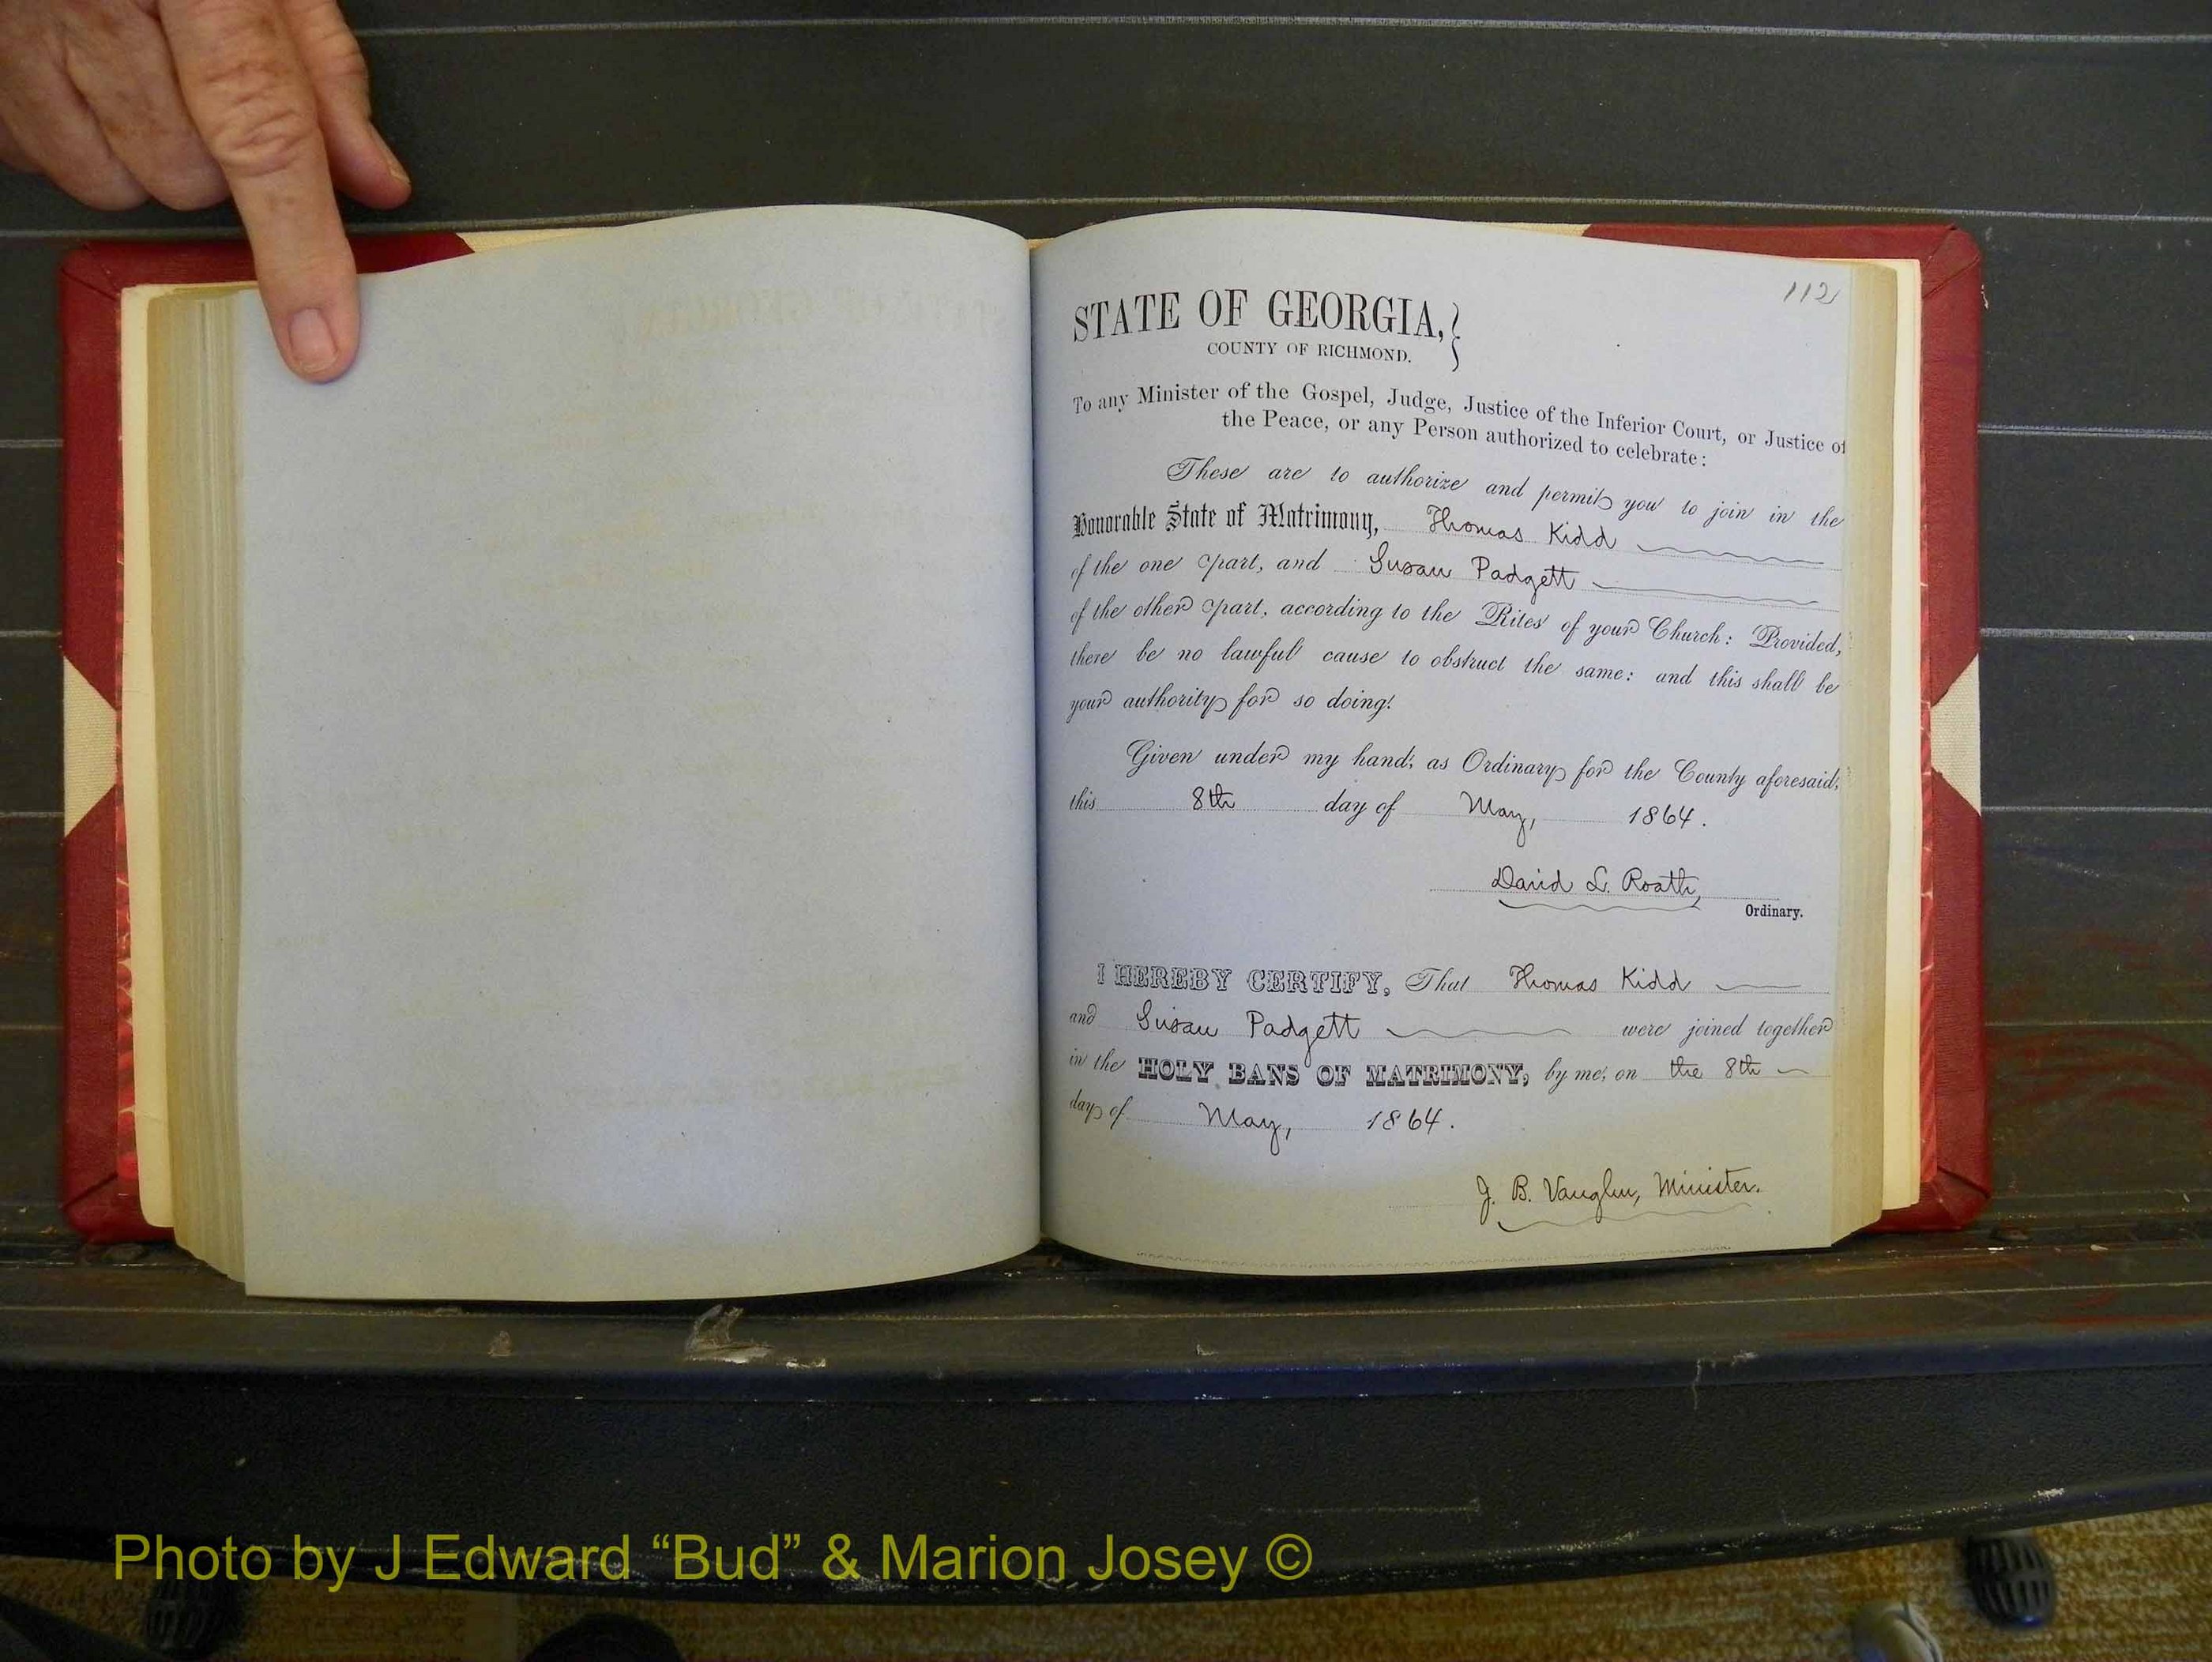 112
STATE OF GEORGIA,}
COUNTY OF RICHMOND.
To any Minister of the Gospel, Judge, Justice of the Inferior Court, or Justice of
the Peace, or any Person authorized to celebrate:
These are to authorize and permit you to join in the
Honorable State of Matrimony, Thomas Kidd
of the one part, and Susan Padgett
of the other part, according to the Rites of your Church: Provided,
there be no lawful cause to obstruct the same: and this shall be
your authority for so doing.
Given under my hand, as Ordinary for the County aforesaid,
this 8th day of May, 1864.
David L. Roath,
Ordinary.
I HEREBY CERTIFY, That Thomas Kidd
and Susan Padgett were joined together
in the HOLY BANS OF MATRIMONY, by me, on the 8th
day of May, 1864.
J. B. Vaughn, Minister.
Photo by J Edward “Bud” & Marion Josey ©